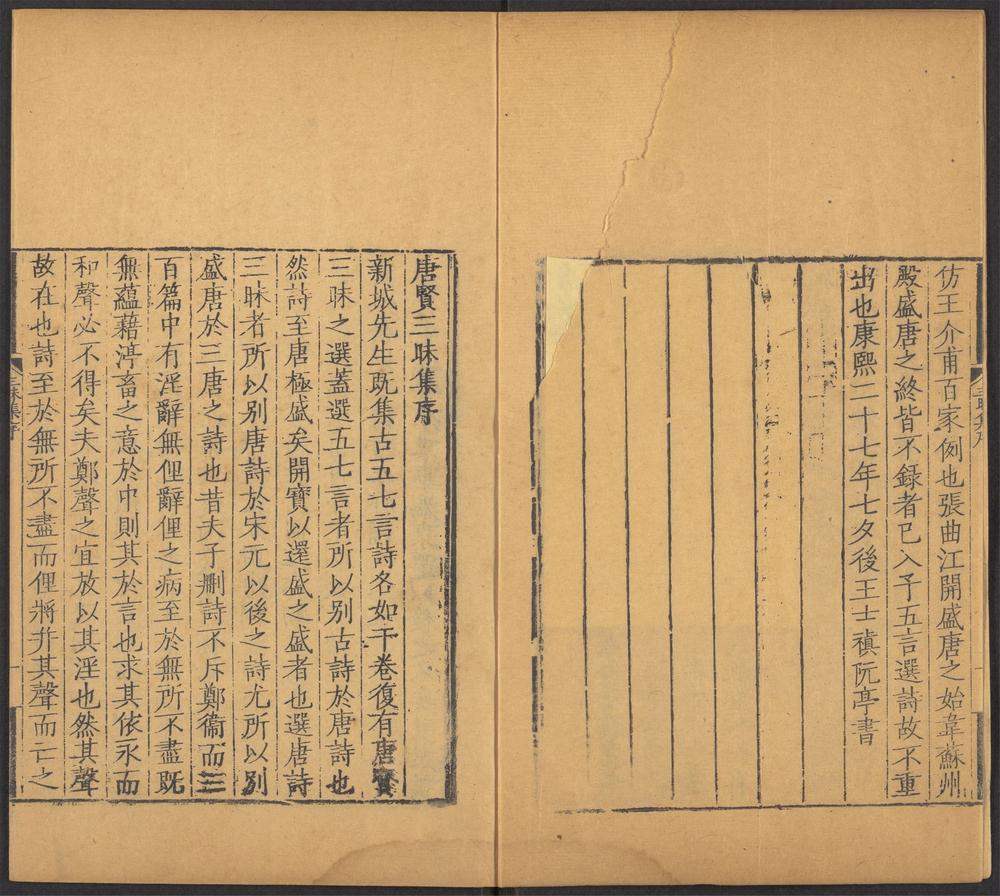 仿王介甫百家例也張曲江開盛唐之始韋蘇州
殿盛唐之終皆不録者已入予五言選詩故不重
出也康熙二十七年七夕後王士禛阮亭書
唐賢三昧集序
新城先生既集古五七言詩各如干卷復有唐賢
三昧之選蓋選五七言者所以別古詩於唐詩也
然詩至唐極盛矣開寶以還盛之盛者也選唐詩
三昧者所以別唐詩於宋元以後之詩尤所以別
盛唐於三唐之詩也昔夫子刪詩不斥鄭衞而三
百篇中有淫辭無俚辭俚之病至於無所不盡既
無蘊藉渟畜之意於中則其於言也求其依永而
和聲必不得矣夫鄭聲之宜放以其淫也然其聲
故在也詩至於無所不盡而俚將幷其聲而亡之
三昧集序